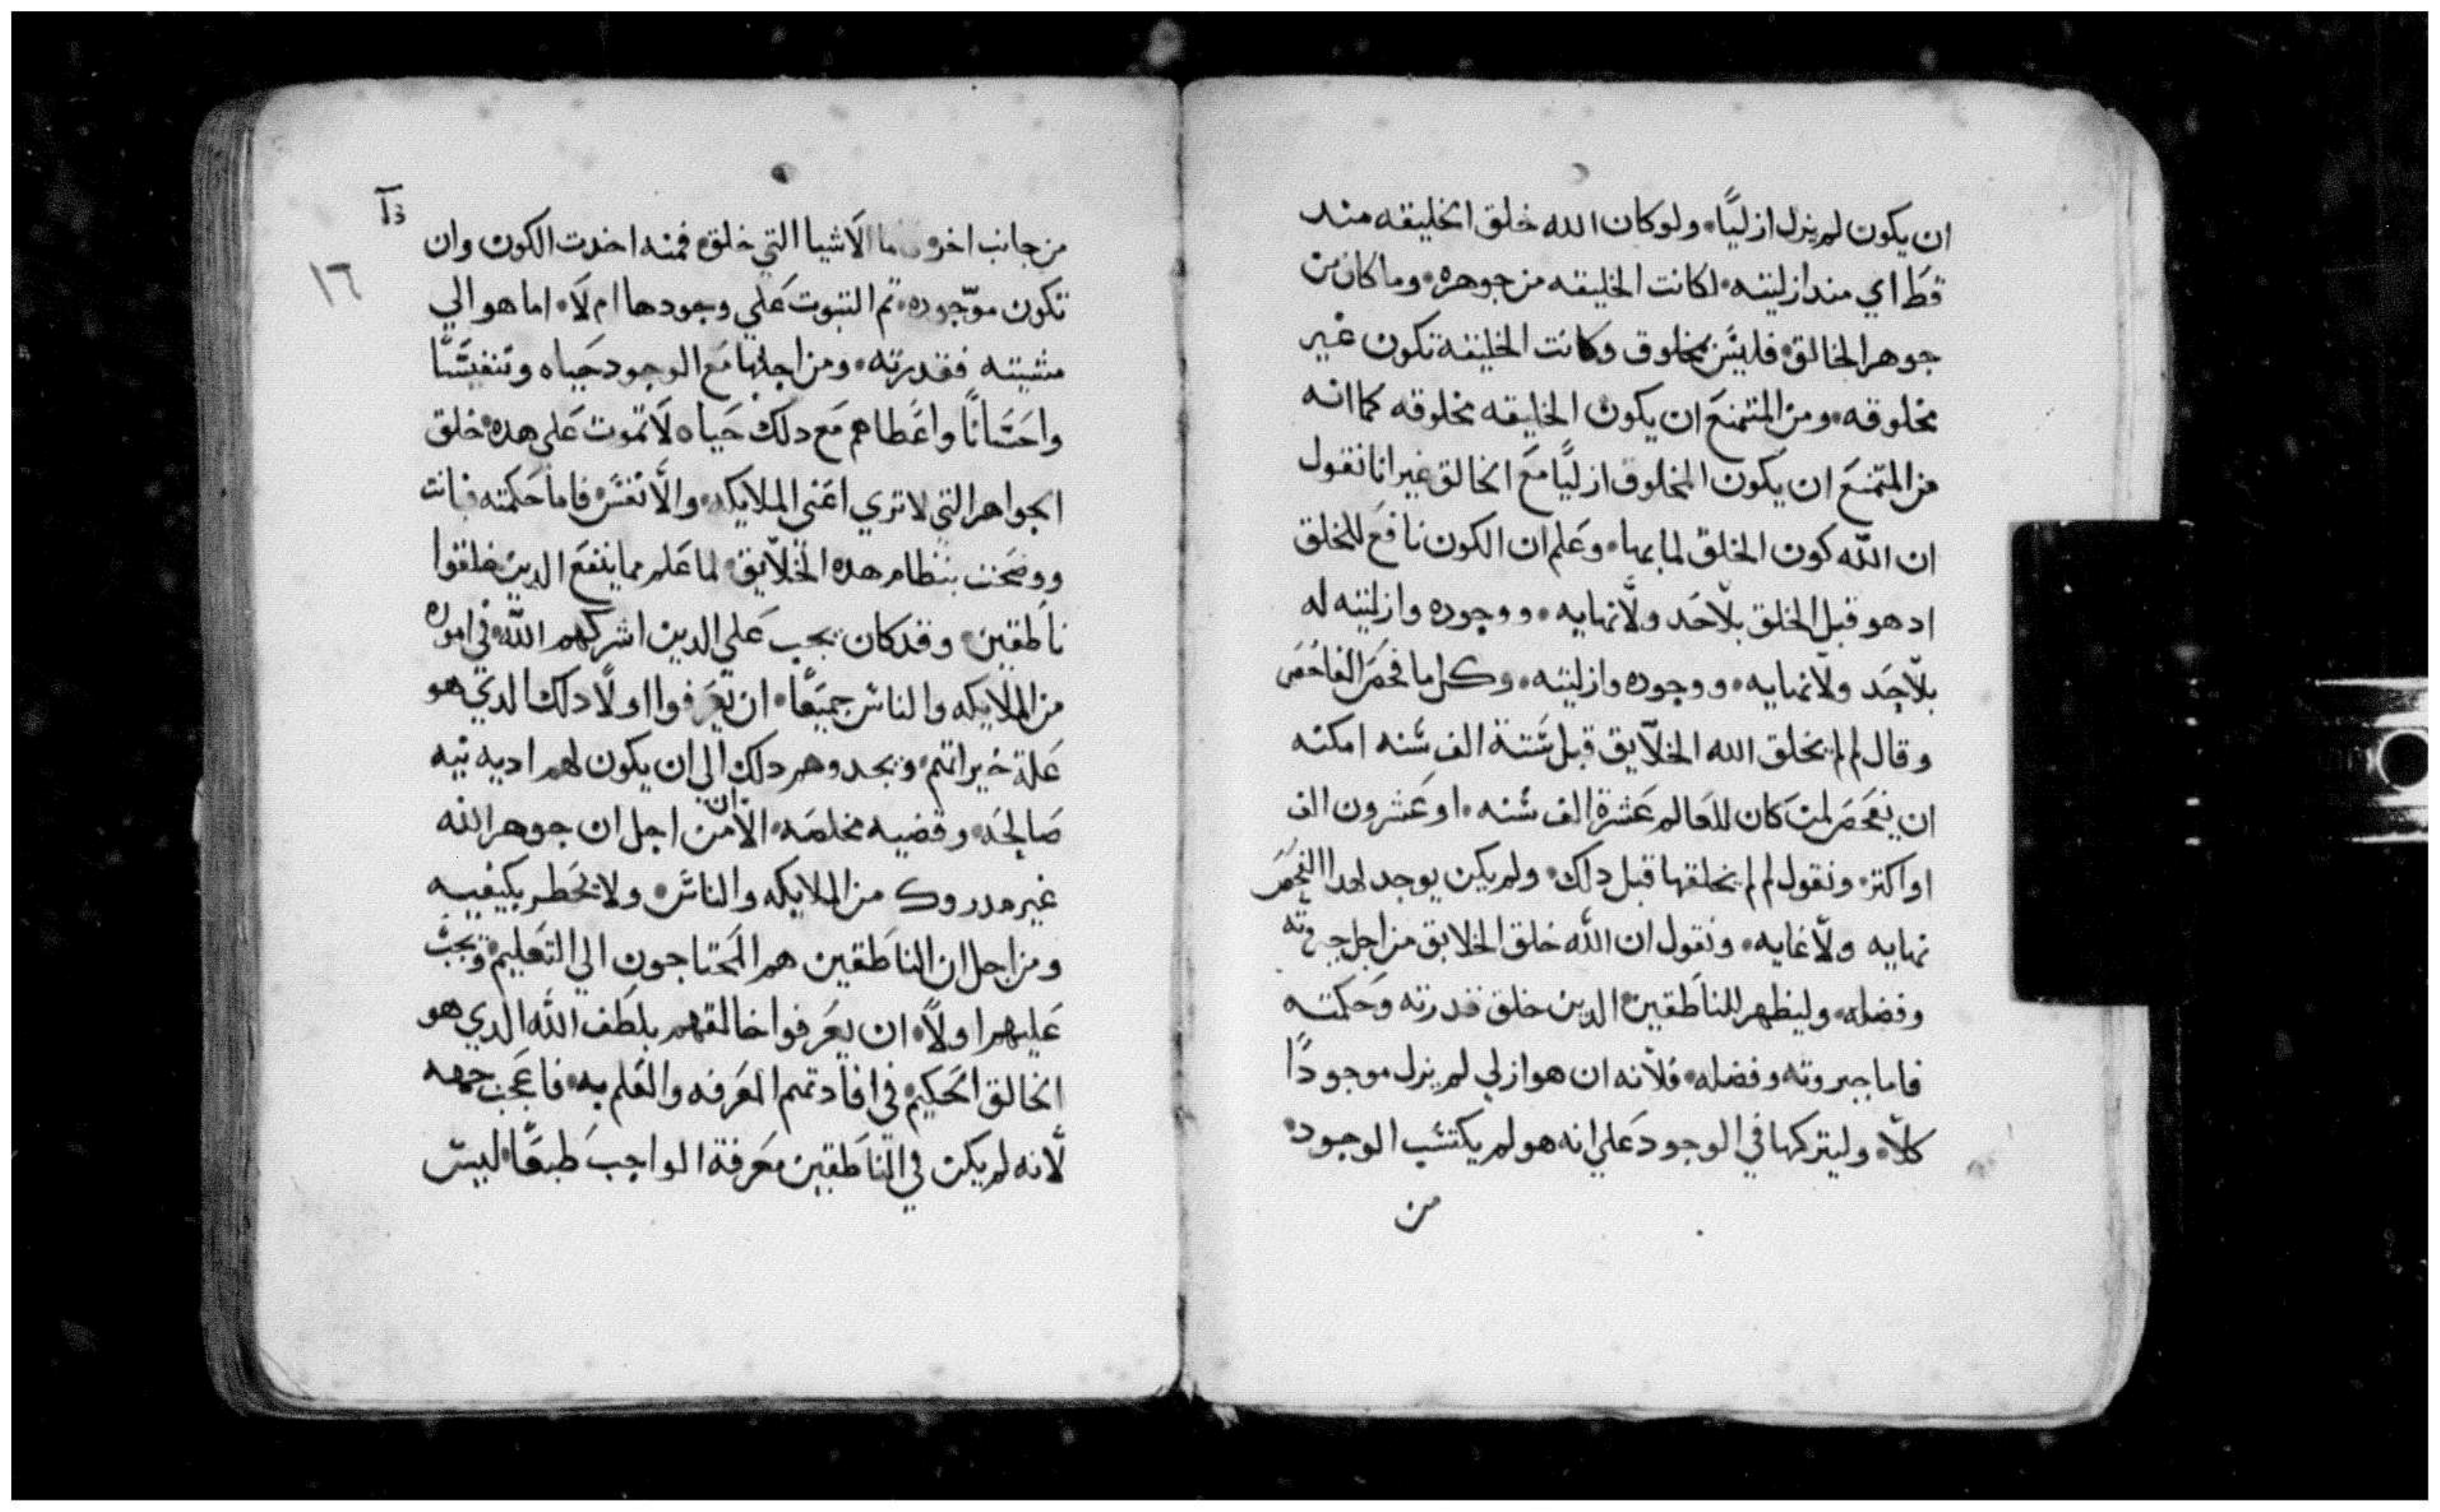 ان يكون لم يزل ازليًا٠ ولو كان الله خلق الخليقه مند
قط اي مند ازليته٠ لكانت الخليقه من جوهره٠ وما كان من
جوهر الخالق٠ فليس بمخلوق وكانت الخليقة تكون غير
مخلوقه٠ ومن الممتنع ان يكون الخليقه مخلوقه كما انه
من الممتنع ان يكون المخلوق ازليًا مع الخالق غير انا نقول
ان الله كون الخلق لما بها٠ وعلم ان الكون نافع للخلق
اد هو قبل الخلق بلا حد ولا نهايه٠ ووجوده وازليته له
بلا حد ولا نهايه٠ ووجوده وازليته٠ وكل ما فحص الفاحص
وقال لم لم يخلق الله الخلايق قبل ستة الف سنه امكنه
ان يفحص لمن كان للعالم عشرة الف سنه٠ او عشرون الف
او اكتر٠ ونقول لم لم يخلقها قبل دلك٠ ولم يكن يوجد لهدا الفحص
نهايه ولا غايه٠ ونقول ان الله خلق الخلايق من اجل جبروته
وفضله٠ وليظهر للناطقين٠ الدين خلق قدرته وحكمته
فاما جبروته وفضله٠ فلانه ان هو ازلي لم يزل موجودًا
كلا٠ وليتركها في الوجود علي انه هو لم يكتسب الوجود٠
من
١٦
من جانب اخر الاشيا التي خلق٠ فمنه اخدت الكون وان
تكون موجوده٠ تم التبوت علي وجودها ام لا٠ اما هو الي
مشيته فقدرته٠ ومن اجلها مع الوجود حياه وتنفيسًا
واحسانًا واعطاهم مع دلك حياه لا تموت علي هده٠ خلق
الجواهر التي لا تري اعني الملايكه٠ والانفس٠ فاما حكمته فبانت
ووضحت بنظام هده الخلايق٠ لما علم مما ينفع الدين خلقوا
ناطقين٠ وقد كان يجب علي الدين اشركهم الله٠ في اموره
من الملايكه والناس جميعًا٠ ان يعرفوا اولًا دلك الدي هو
علة خيراتهم٠ وبحدوهر دلك الي ان يكون لهم اديه نيه
صالحه٠ وقضيه مخلصه٠ الا ان من اجل ان جوهر الله
غير مدروك من الملايكه والناس٠ ولا يخطر بكيفيه
ومن اجل ان الناطقين هم المحتاجون الي التعليم٠ ويجب
عليهم اولًا٠ ان يعرفوا خالقهم بلطف الله الدي هو
الخالق الحكيم٠ في افادتهم المعرفه والعلم به٠ فاعجب
لانه لم يكن في الناطقين معرفة الواجب طبعًا٠ ليس